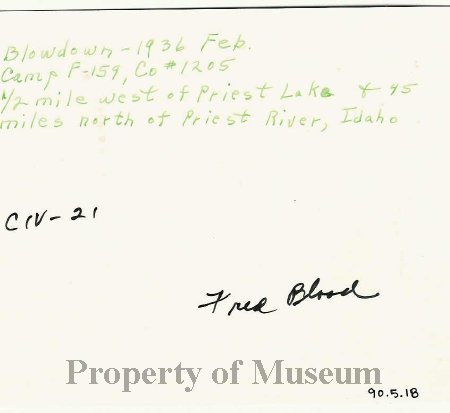 Blowdown - 1936 Feb.
Camp F-159, Co #1205
1/2 mile west of Priest Lake & 45
miles north of Priest River, Idaho
CIV-21
Fred Blood
Property of Museum
90.5.18